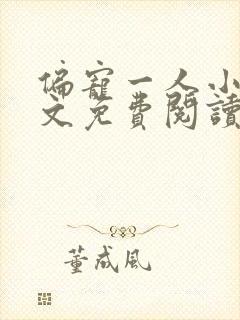 偏寵一人小
文免費閱讀
董成風